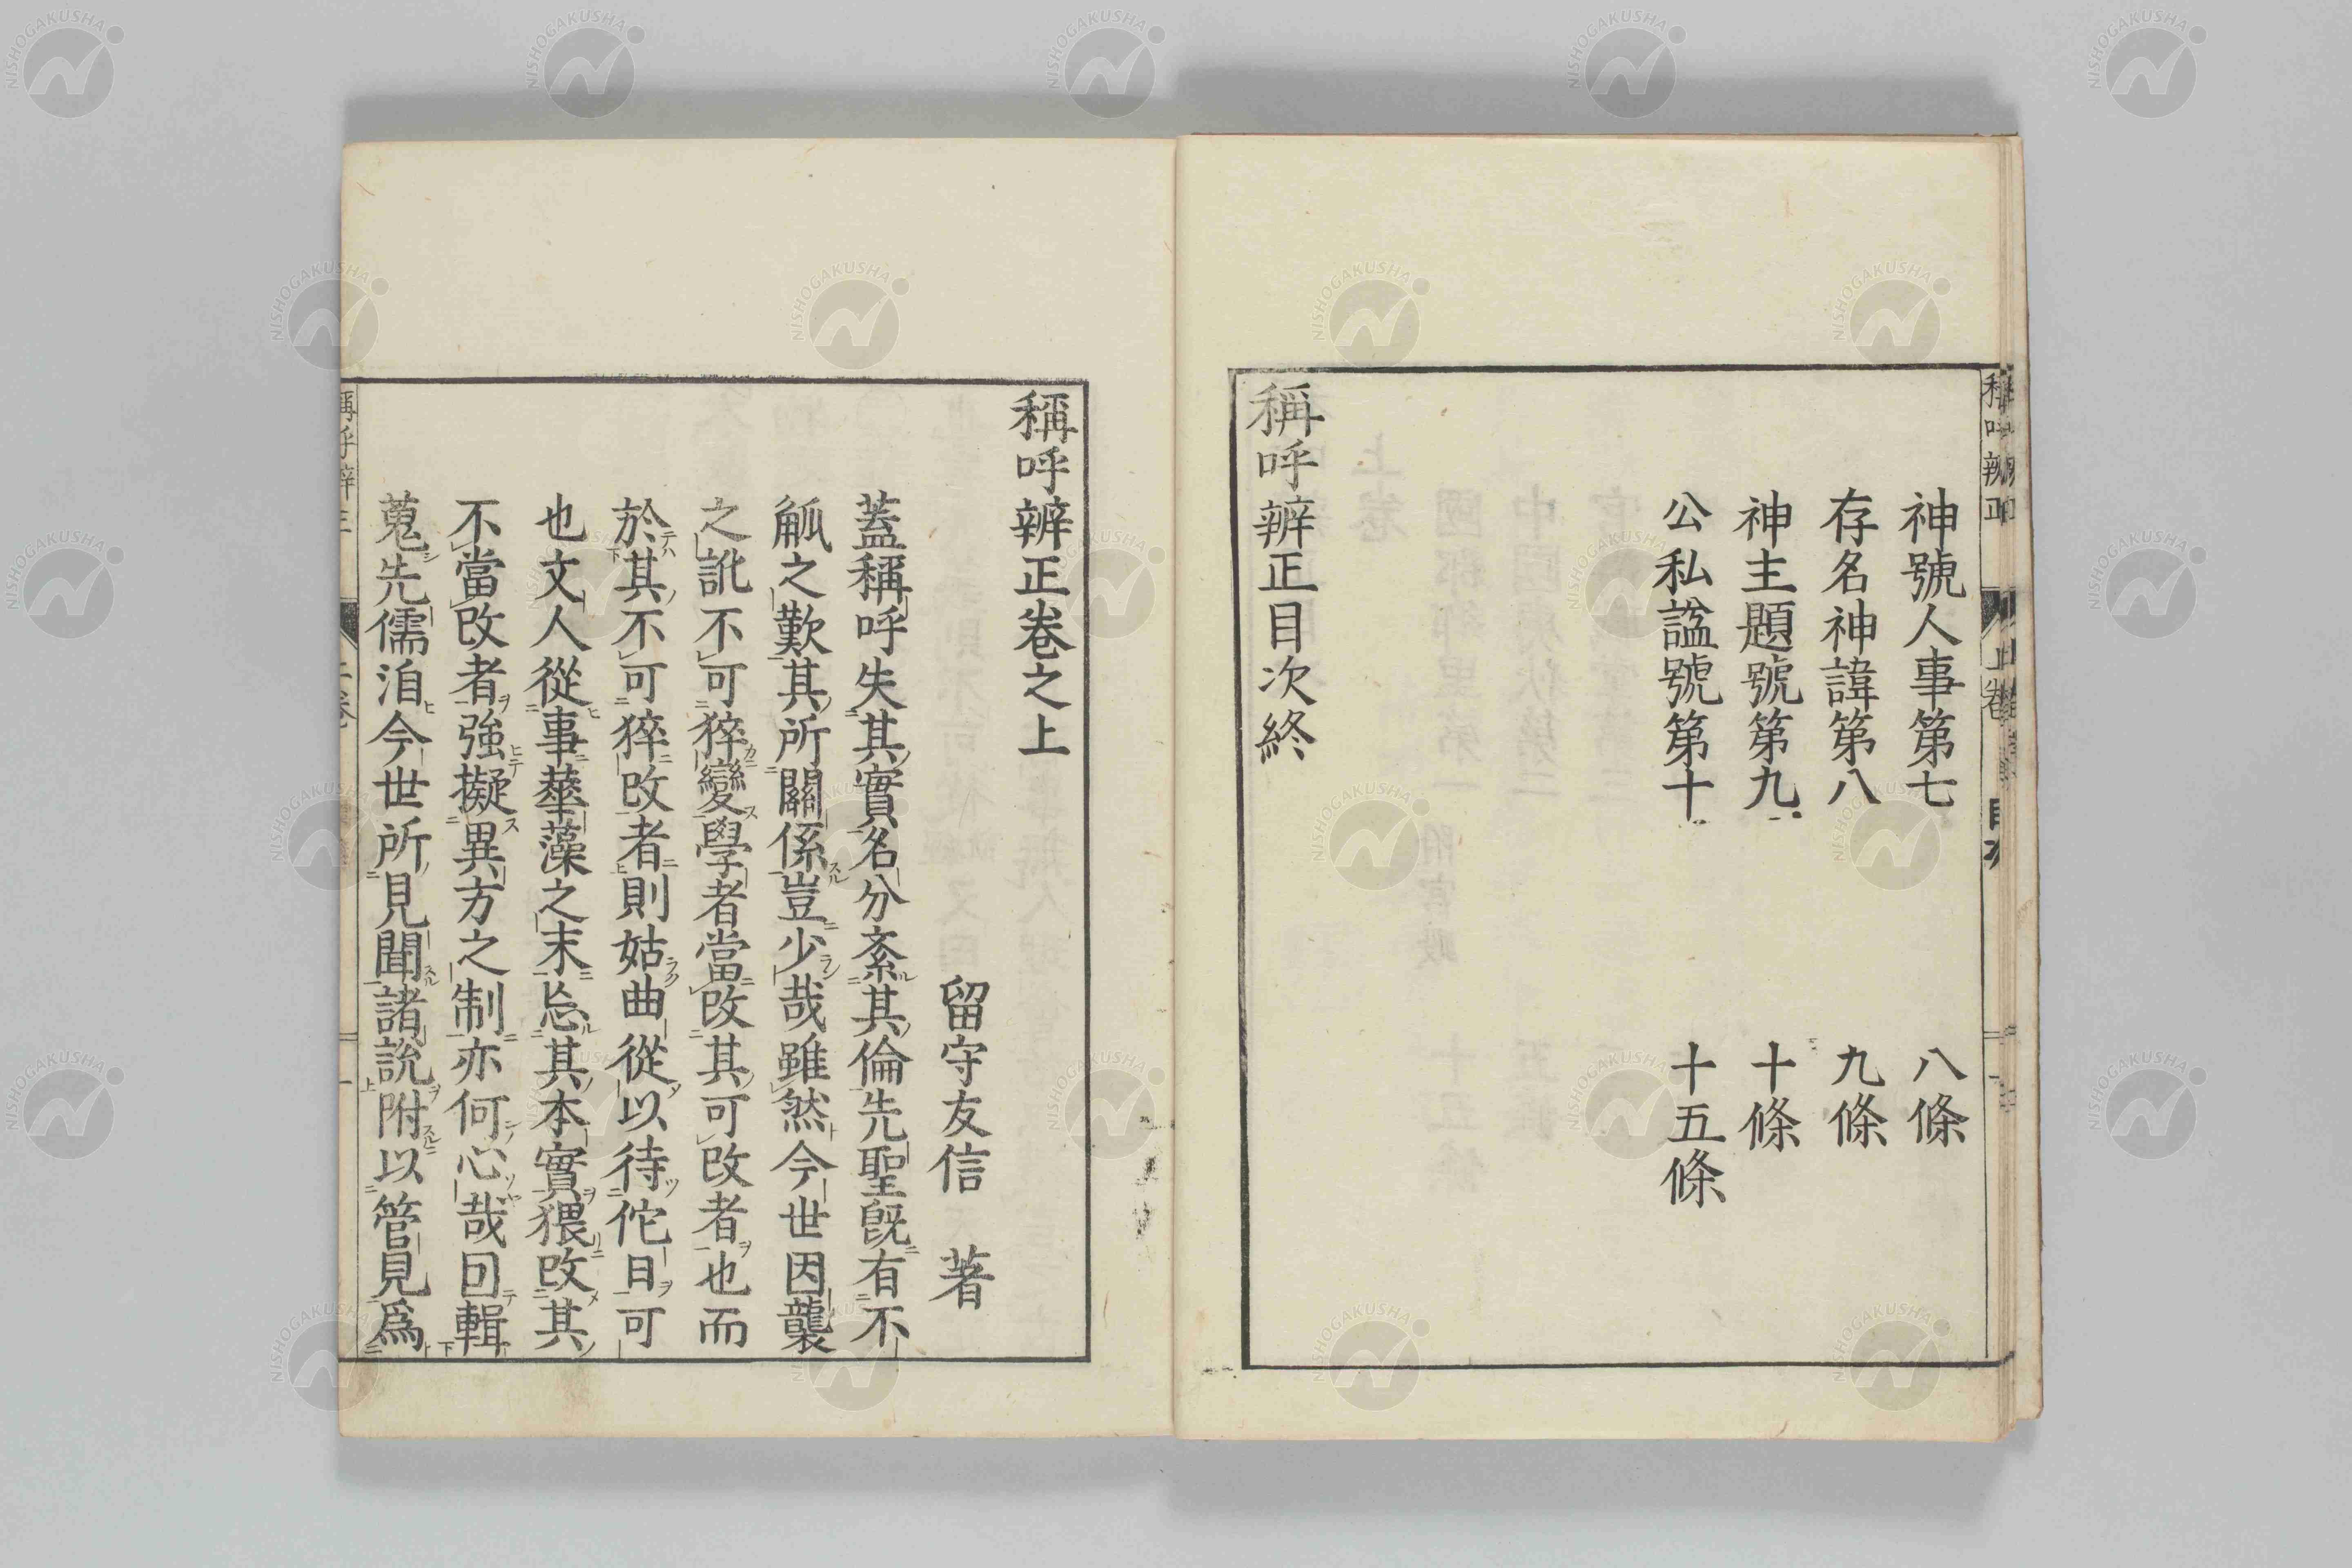 神號人事第七 八條
存名神諱第八 九條
神主題號第九 十條
公私諡號第十 十五條
稱呼辨正目次終
稱呼辨正卷之上
留守友信 著
蓋稱呼失其實名分紊其倫先聖旣有不
觚之歎其所關係豈少哉雖然今世因襲
之訛不可猝變學者當改其可改者也而
於其不可猝改者則姑曲從以待佗日可
也文人從事華藻之末忘其本實猥改其
不當改者強擬異方之制亦何心哉回輯
蒐先儒洎今世所見聞諸說附以管見爲